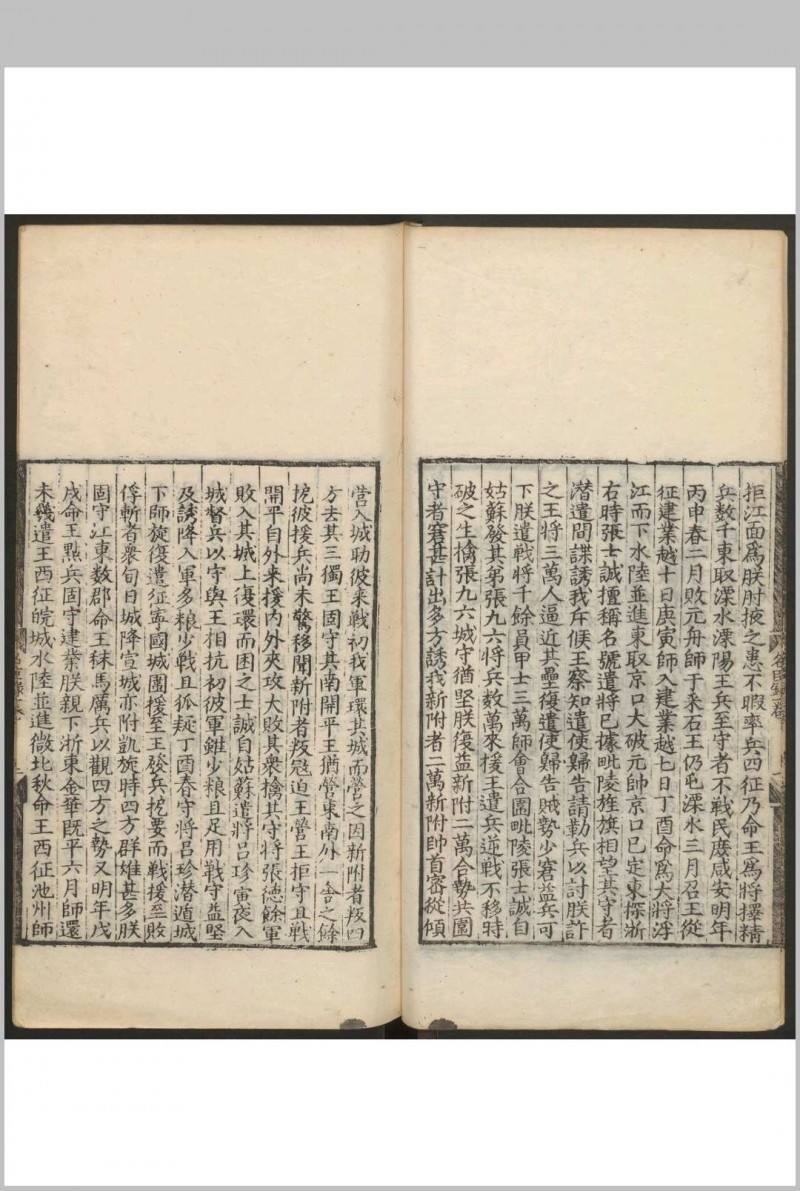 拒江面爲朕肘掖之患不暇率兵四征乃命王爲將擇精
兵数千東取溧水溧陽王兵至守者不戰民庶咸安明年
丙申春二月敗元舟師于采石王仍屯溧水三月召王從
征建業越十日庚寅師入建業越七日丁酉命爲大將浮
江而下水陸並進東取京口大破元帥京口已定東探浙
右時張士誠擅稱名號遣將已據毗陵旌旗相望其守者
潜遣間諜誘我斥候王察知遣使歸告請勒兵以討朕許
之王將三萬人逼近其壘復遣使歸告賊勢少窘益兵可
下朕遣戰將千餘員甲士三萬師會合圍毗陵張士誠自
姑蘇發其弟張九六將兵数萬來援王遣兵逆戰不移時
破之生擒張九六城守猶堅朕復益新附二萬合勢共圍
守者窘甚計出多方誘我新附者二萬新附帥首密從傾
營入城助彼来戰初我軍環其城而營之因新附者叛四
方去其三獨王固守其南開平王猶營東南外一舎之餘
挖彼援兵尚未驚移開新附者叛冦迫王營王拒守且戰
開平自外来援内外夾攻大敗其衆擒其守將張徳餘軍
敗入其城上復環而困之士誠自姑蘇遣將吕珍寅夜入
城督兵以守與王相抗初彼軍雖少粮且足用戰守益堅
及誘降入軍多粮少戰且狐疑丁酉春守將吕珍潜遁城
下師旋復遣征寧國城圍援至王發兵挖要而戰援至敗
俘斬者衆旬日城降宣城亦附凱旋時四方群雄甚多朕
固守江東数郡命王秣馬厲兵以觀四方之勢又明年戊
戌命王㸃兵固守建業朕親下浙東金華既平六月師還
未幾遣王西征皖城水陸並進徴北秋命王西征池州師